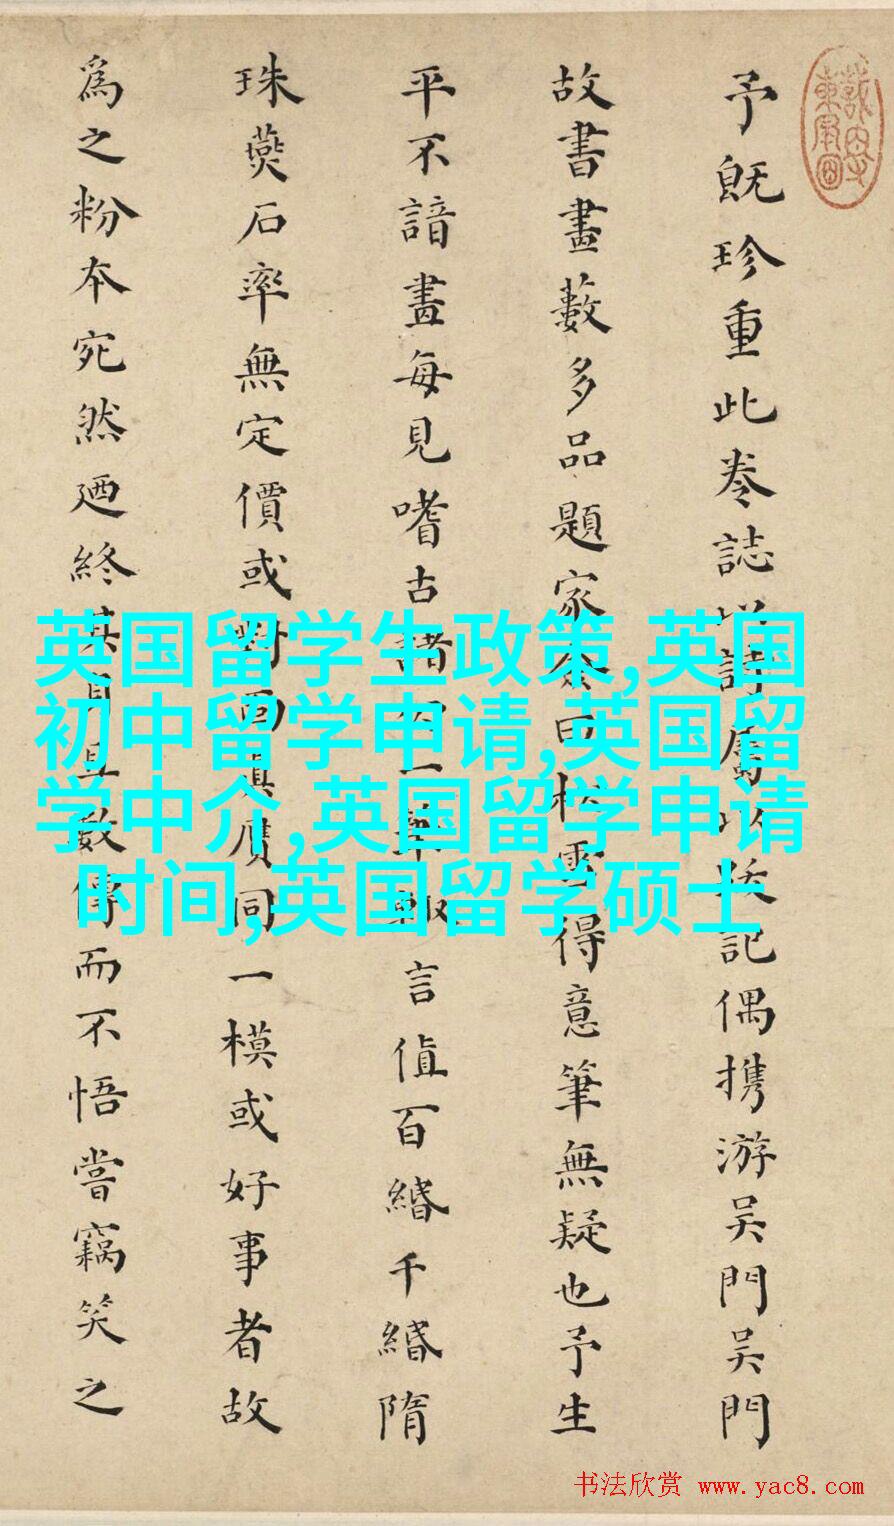 予既珍重此卷誌以詩屬以跋記偶携游吴門吴門
故書畫藪多品題家僉曰松雪得意筆無疑也予生
平不諳畫每見嗜古諸 一 輒言值百緡千緡隋
珠燕石率無定價或對面真贋同一模或好事者故
為之粉本宛然廼終其身且數傳而不悟嘗竊笑之
英国留学生政策,英国
初中留学申请,英国留
学中介,英国留学申请
时间,英国留学硕士
书法欣赏 www.yac8.com